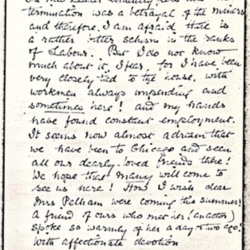 termination was a betrayal of the miners
and therefore, I am afraid there is
a rather bitter schism in the ranks
of Labour. But I do not know
much about it, I fear, for I have been
very closely tied to the house, with
workmen always impending and
sometimes here! and my hands
have found constant employment.
It seems now almost a dream that
we have been to Chicago and seen
all our dearly-loved friends there!
We hope that many will come to
see us here! How I wish dear
Mrs Pelham were coming this summer!
A friend of ours who met her
spoke so warmly of her a day or two ago.
With affectionate devotion